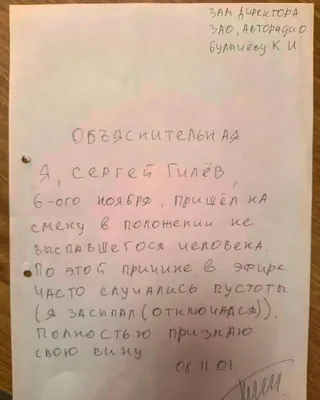 ЗАМ. ДИРЕКТОРА
ЗАО, АВТОРАДИО
К. И
ОБЪЯСНИТЕЛЬНАЯ
Я, СЕРГЕЙ ГИЛЁВ,
6-ОГО НОЯБРЯ, ПРИШЁЛ НА
СМЕНУ В ПОЛОЖЕНИИ НЕ
ВЫСПАВШЕГОСЯ ЧЕЛОВЕКА.
ПО ЭТОЙ ПРИЧИНЕ В ЭФИРЕ
ЧАСТО СЛУЧАЛИСЬ ПУСТОТЫ
(Я ЗАСЫПАЛ (ОТКЛЮЧАЛСЯ)).
ПОЛНОСТЬЮ ПРИЗНАЮ
СВОЮ ВИНУ
08 11 01